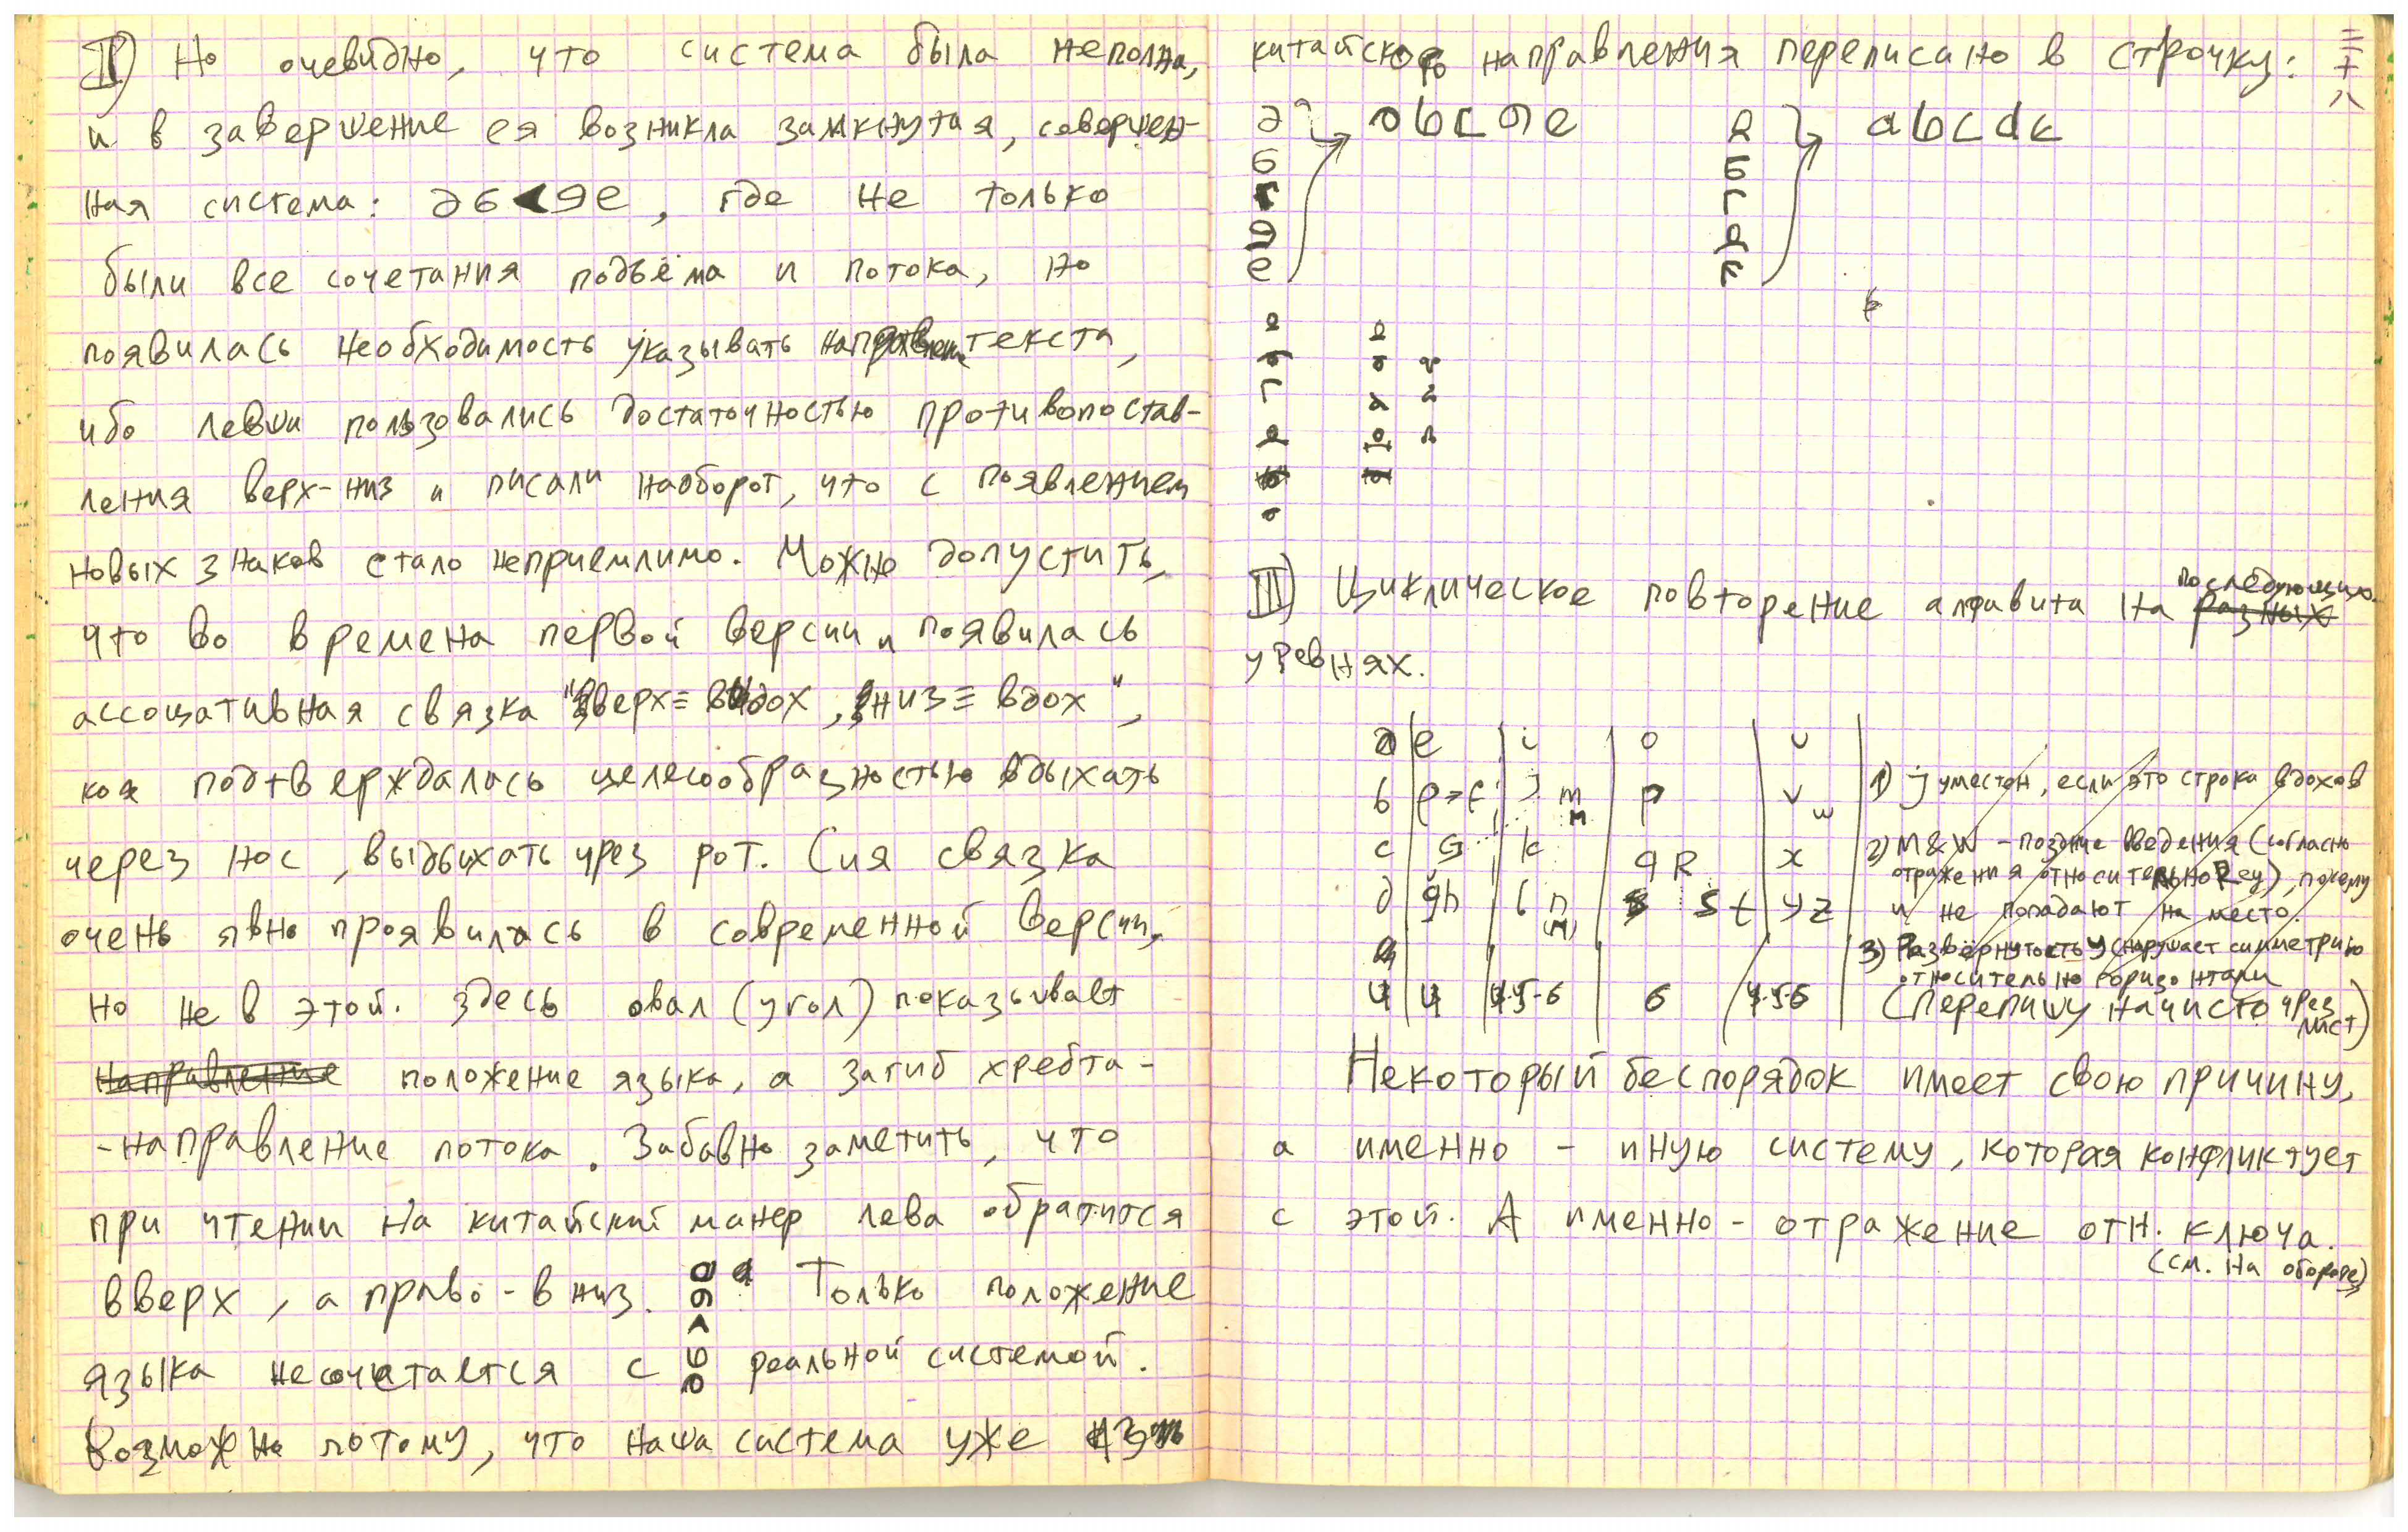 II) Но очевидно, что система была неполна,
и в завершение ея возникла замкнутая, совершен-
ная система: ә6<9е, где не только
были все сочетания подъёма и потока, но
появилась необходимость указывать текста,
ибо левши пользовались достаточностью противопостав-
ления верх-низ и писали наоборот, что с появлением
новых знаков стало неприемлимо. Можно допустить,
что во времена первой версии и появилась
ассоциативная связка "вверх≡выдох, вниз≡вдох",
коя подтверждалась целесообразностью вдыхать
через нос, выдыхать чрез рот. Сия связка
очень явно проявилась в современной версии,
но не в этой. Здесь овал (угол) показывает
направление положение языка, а загиб хребта -
-направление потока. Забавно заметить, что
при чтении на китайский манер лева обратится
вверх, а право-вниз. ә6<9е Только положение
языка несочетается с реальной системой.
Возможно потому, что наша система уже
китайского направления переписано в строчку:
二十八
abcde
abcde
III) Циклическое повторение алфавита на разных последующих
уровнях.
a | e | i | o | u
b | f | j m | p | v w
c | G | k | q R | x
d | gh | l n (м) | s t | y z
4 | 4 | 4-5-6 | 6 | 4-5-6
1) j уместен, если это строка вдохов
2) M&W - поздние введения (согласно
отражения относительно Rey), почему
и не попадают на место.
3) Развёрнутость y нарушает симметрию
относительно горизонтали
(Перепишу начисто чрез
лист)
Некоторый беспорядок имеет свою причину,
а именно - иную систему, которая конфликтует
с этой. А именно - отражение отн. ключа.
(см. на обороте)